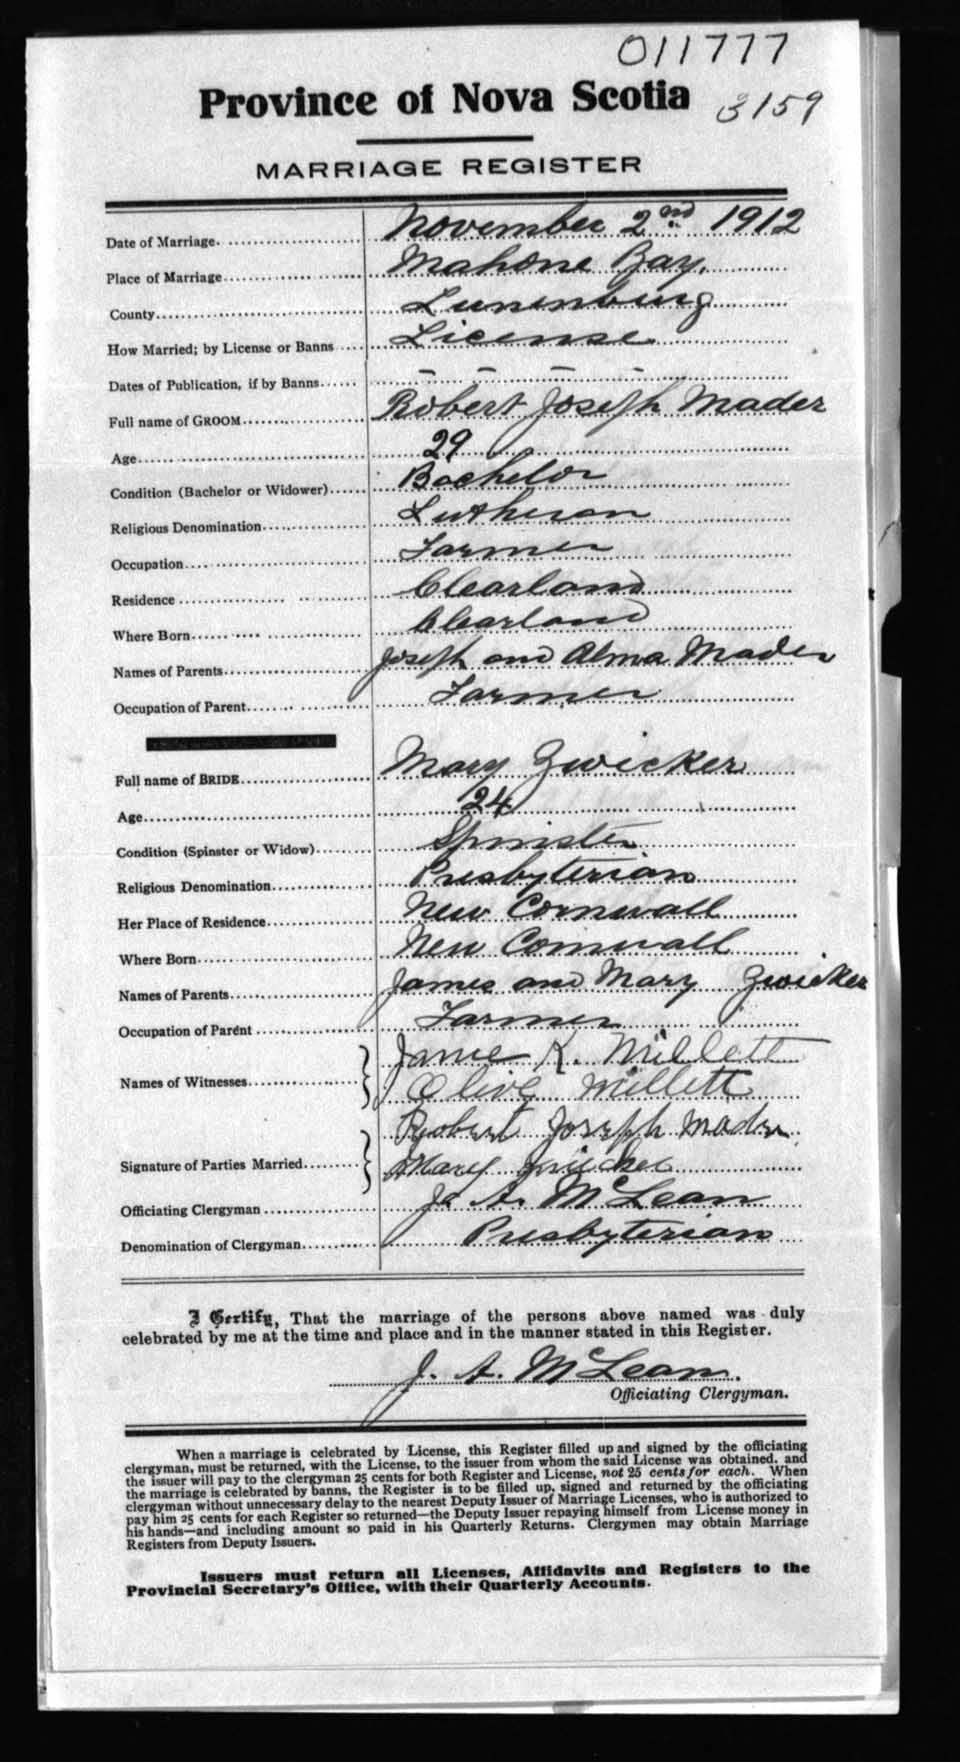 011777
Province of Nova Scotia 3159
MARRIAGE REGISTER
Date of Marriage November 2nd 1912
Place of Marriage Mahone Bay,
County Lunenburg
How Married; by License or Banns License
Dates of Publication, if by Banns – – – –
Full name of GROOM Robert Joseph Mader
Age 29
Condition (Bachelor or Widower) Bachelor
Religious Denomination Lutheran
Occupation Farmer
Residence Clearland
Where Born Clearland
Names of Parents Joseph and Alma Mader
Occupation of Parent Farmer
Full name of BRIDE Mary Zwicker
Age 24
Condition (Spinster or Widow) Spinster
Religious Denomination Presbyterian
Her Place of Residence New Cornwall
Where Born New Cornwall
Names of Parents James and Mary Zwicker
Occupation of Parent Farmer
Names of Witnesses Janie K. Millett
Olive Millett
Signature of Parties Married Robert Joseph Mader
Mary Zwicker
Officiating Clergyman J. A. McLean
Denomination of Clergyman Presbyterian
I Certify, That the marriage of the persons above named was duly
celebrated by me at the time and place and in the manner stated in this Register.
J. A. McLean.
Officiating Clergyman.
When a marriage is celebrated by License, this Register filled up and signed by the officiating
clergyman, must be returned, with the License, to the issuer from whom the said License was obtained, and
the issuer will pay to the clergyman 25 cents for both Register and License, not 25 cents for each. When
the marriage is celebrated by banns, the Register is to be filled up, signed and returned by the officiating
clergyman without unnecessary delay to the nearest Deputy Issuer of Marriage Licenses, who is authorized to
pay him 25 cents for each Register so returned—the Deputy Issuer repaying himself from License money in
his hands—and including amount so paid in his Quarterly Returns. Clergymen may obtain Marriage
Registers from Deputy Issuers.
Issuers must return all Licenses, Affidavits and Registers to the
Provincial Secretary's Office, with their Quarterly Accounts.